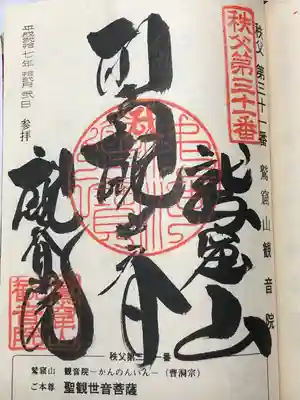 秩父 第三十一番 鷲窟山観音院
秩父第三十一番
鷲窟山
聖観世音
観音院
平成 七年 月 日 参拝
秩父第三十一番
鷲窟山 観音院－かんのんいん－（曹洞宗）
ご本尊 聖観世音菩薩